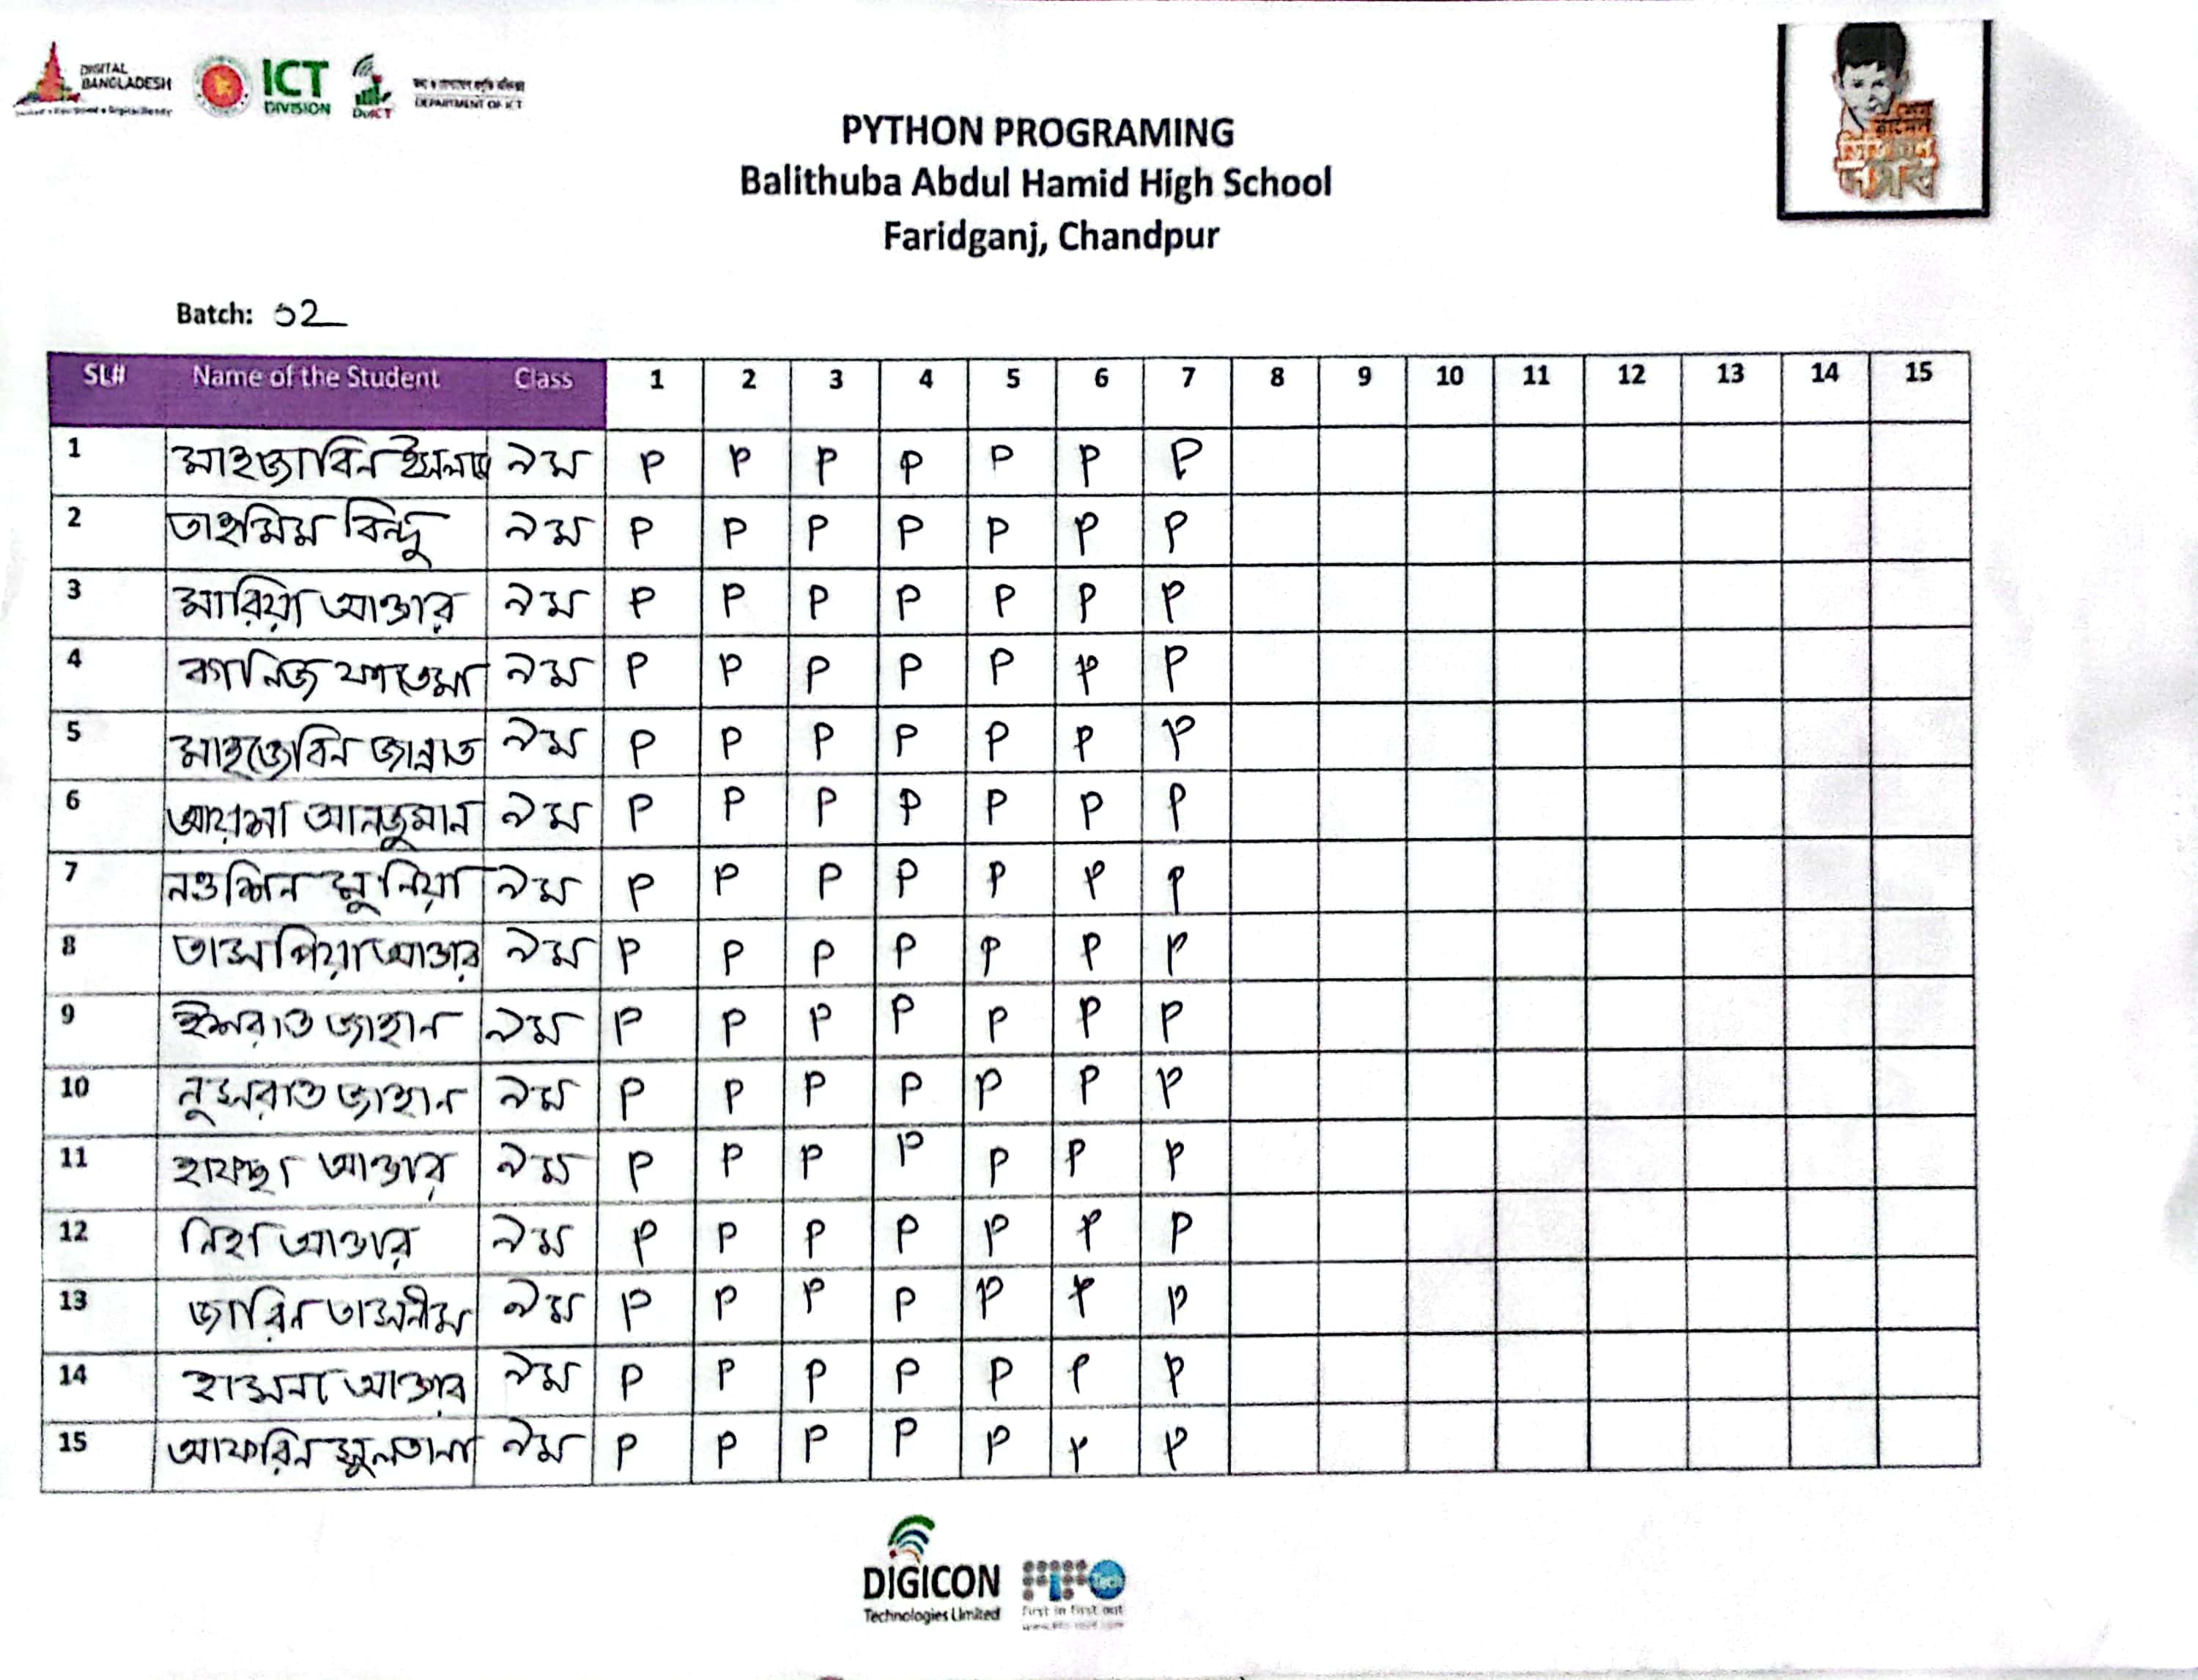 DIGITAL BANGLADESH
ICT DIVISION
DoICT
DEPARTMENT OF ICT
PYTHON PROGRAMING
Balithuba Abdul Hamid High School
Faridganj, Chandpur
Batch: 02
SL# Name of the Student Class 1 2 3 4 5 6 7 8 9 10 11 12 13 14 15
1 মাহজাবিন ইসলাম ৯ম P P P P P P P
2 তাহমিম বিন্দু ৯ম P P P P P P P
3 মারিয়া আক্তার ৯ম P P P P P P P
4 কানিজ ফাতেমা ৯ম P P P P P P P
5 মাহজেবিন জান্নাত ৯ম P P P P P P P
6 আয়শা আনজুমান ৯ম P P P P P P P
7 নওশিন মুনিয়া ৯ম P P P P P P P
8 তাসপিয়া আক্তার ৯ম P P P P P P P
9 ইশরাত জাহান ৯ম P P P P P P P
10 নুসরাত জাহান ৯ম P P P P P P P
11 হাফছা আক্তার ৯ম P P P P P P P
12 নিহা আক্তার ৯ম P P P P P P P
13 জারিন তাসনীম ৯ম P P P P P P P
14 হাসনা আক্তার ৯ম P P P P P P P
15 আফরিন সুলতানা ৯ম P P P P P P P
DIGICON
Technologies Limited
Tech
first in first out